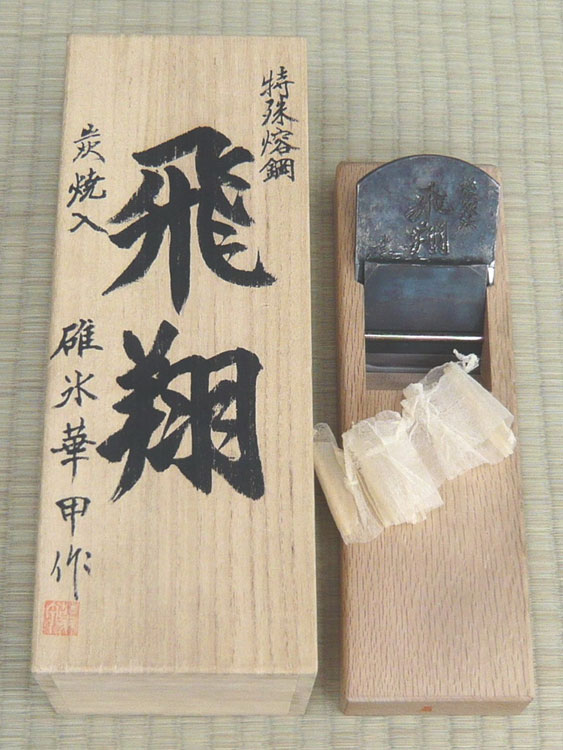 特殊熔鋼
飛翔
炭焼入
碓氷華甲作
飛翔